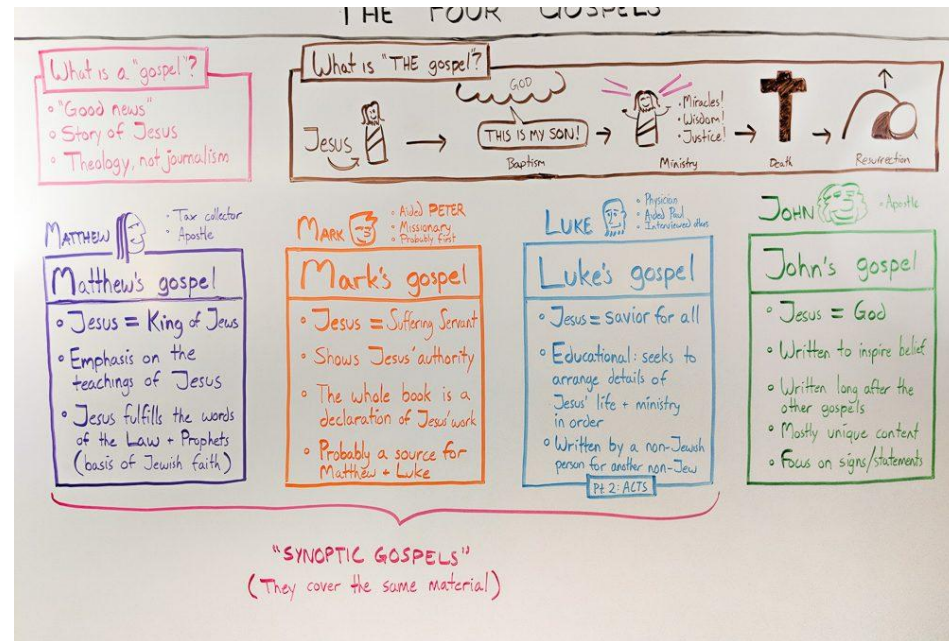 THE FOUR GOSPELS
What is a "gospel"?
• "Good news"
• Story of Jesus
• Theology, not journalism
What is "THE gospel"?
Jesus
GOD
THIS IS MY SON!
Baptism
• Miracles!
• Wisdom!
• Justice!
Ministry
Death
Resurrection
MATTHEW
• Tax collector
• Apostle
Matthew's gospel
• Jesus = King of Jews
• Emphasis on the
teachings of Jesus
• Jesus fulfills the words
of the Law + Prophets
(basis of Jewish faith)
MARK
• Aided PETER
• Missionary
• Probably first
Mark's gospel
• Jesus = Suffering Servant
• Shows Jesus' authority
• The whole book is a
declaration of Jesus' work
• Probably a source for
Matthew + Luke
LUKE
• Physician
• Aided Paul
• Interviewed others
Luke's gospel
• Jesus = savior for all
• Educational: seeks to
arrange details of
Jesus' life + ministry
in order
• Written by a non-Jewish
person for another non-Jew
Pt 2: ACTS
JOHN
• Apostle
John's gospel
• Jesus = God
• Written to inspire belief
• Written long after the
other gospels
• Mostly unique content
• Focus on signs/statements
"SYNOPTIC GOSPELS"
(They cover the same material)